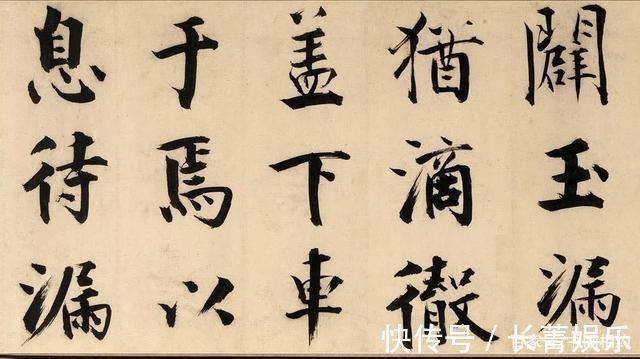 闢玉漏
猶滴徹
盖下車
于焉以
息待漏
快传号 / 长菁娱乐